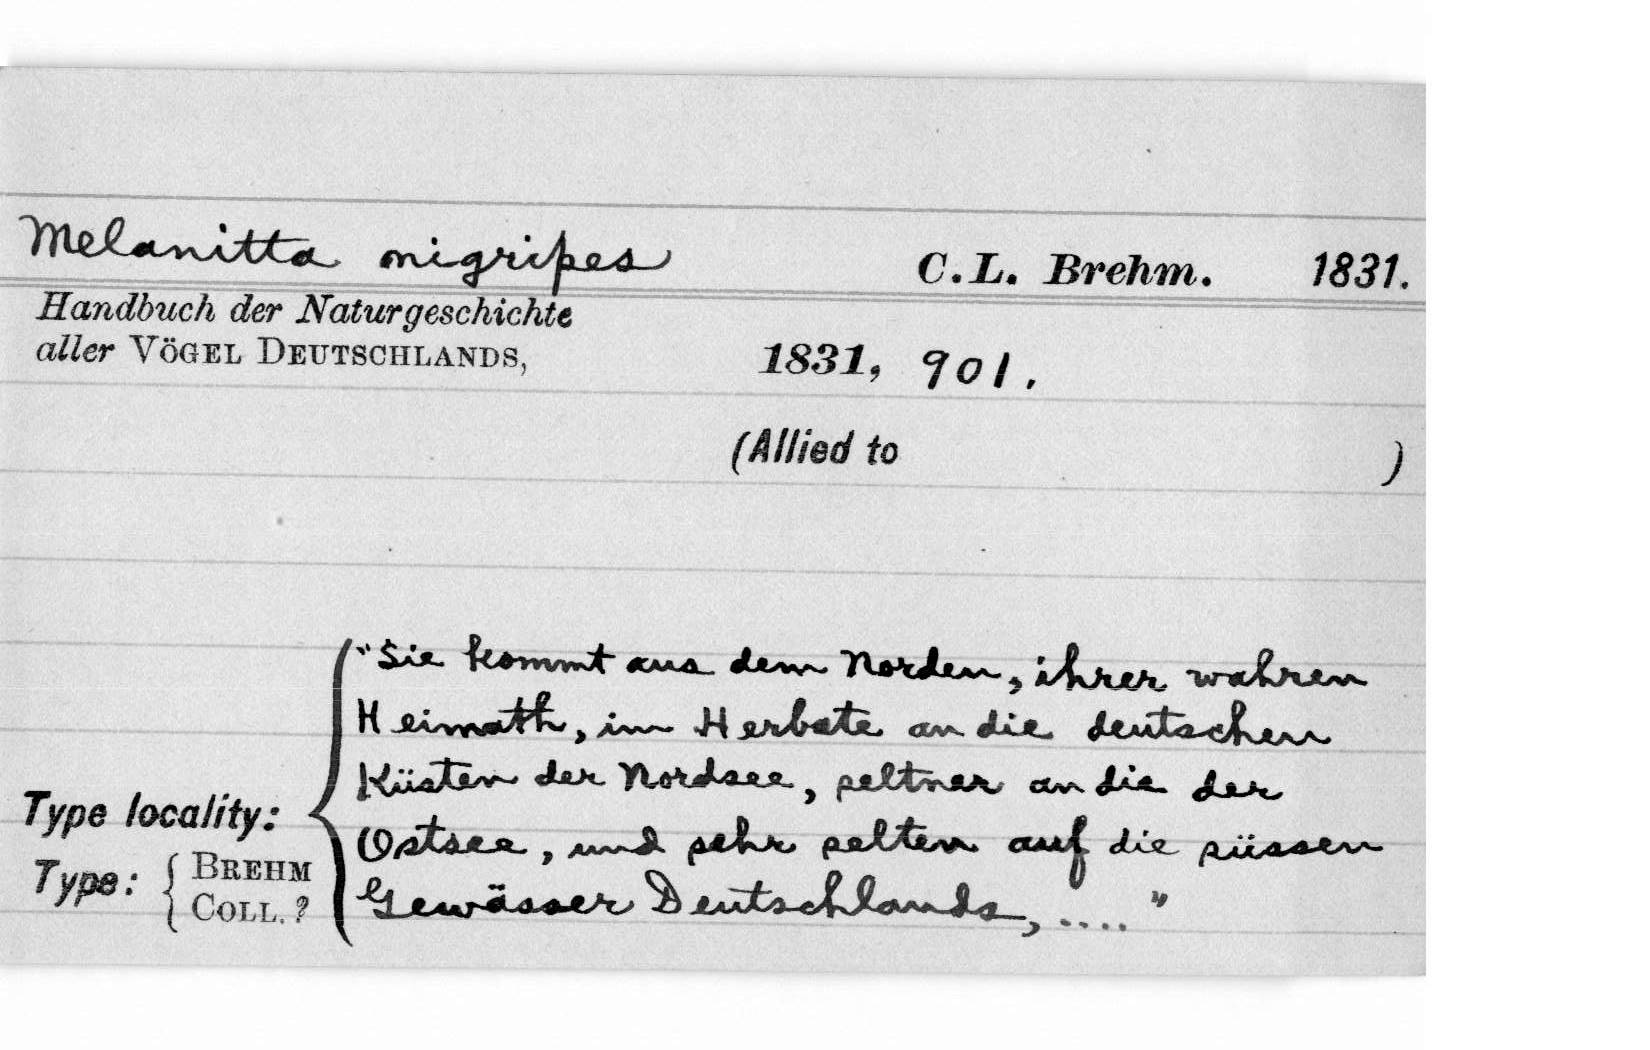 Melanitta nigripes C.L. Brehm. 1831.
Handbuch der Naturgeschichte
aller VÖGEL DEUTSCHLANDS, 1831, 901.
(Allied to )
"Sie kommt aus dem Norden, ihrer wahren
Heimath, im Herbste an die deutschen
Küsten der Nordsee, seltner an die der
Ostsee, und sehr selten auf die süssen
Gewässer Deutschlands, ...."
Type locality:
Type: { BREHM
COLL. ?